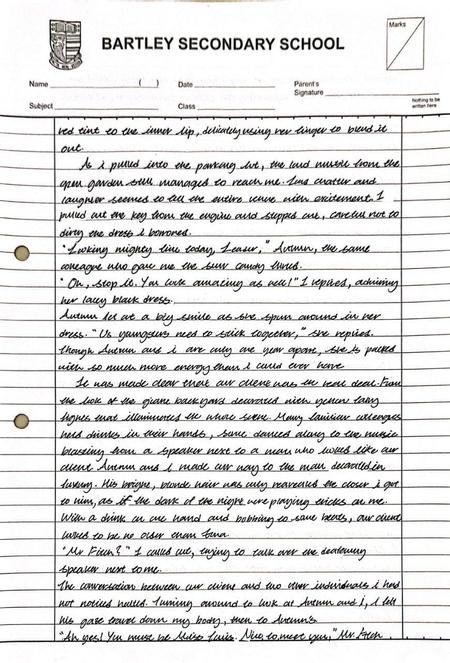 BARTLEY SECONDARY SCHOOL
Marks
Name ( ) Date Parent's
Signature
Subject Class
Nothing to be
written here
red tint to the inner lip, delicately using her finger to blend it
out.
As I pulled into the parking lot, the loud music from the
open garden still managed to reach me. Loud chatter and
laughter seemed to fill the entire venue with excitement. I
pulled out the key from the engine and stepped out, careful not to
dirty the dress I borrowed.
"Looking mighty fine today, ," Autumn, the same
colleague who gave me the candy
"Oh, stop it. You look amazing as well!" I replied, admiring
her lacey black dress.
Autumn let out a big smile as she spun around in her
dress. "Us youngsters need to stick together," she replied.
Though Autumn and I are only one year apart, she is packed
with so much more energy than I could ever have.
It was made clear that our client was the real deal. From
the look of the giant backyard decorated with golden fairy
lights that illuminated the whole scene. Many familiar colleagues
held drinks in their hands, some danced along to the music
blasting from a speaker next to a man who looked like our
client. Autumn and I made our way to the man decorated in
luxury. His bright, blonde hair was only revealed the closer I got
to him, as if the dark of the night were playing tricks on me.
With a drink in one hand and bobbing to some beats, our client
looked to be no older than
"Mr Finch?" I called out, trying to talk over the deafening
speaker next to me.
The conversation between our client and two other individuals I had
not noticed halted. Turning around to look at Autumn and I, I felt
his gaze travel down my body, then to Autumn's.
"Ah yes! You must be Miss . Nice to meet you," Mr Finch